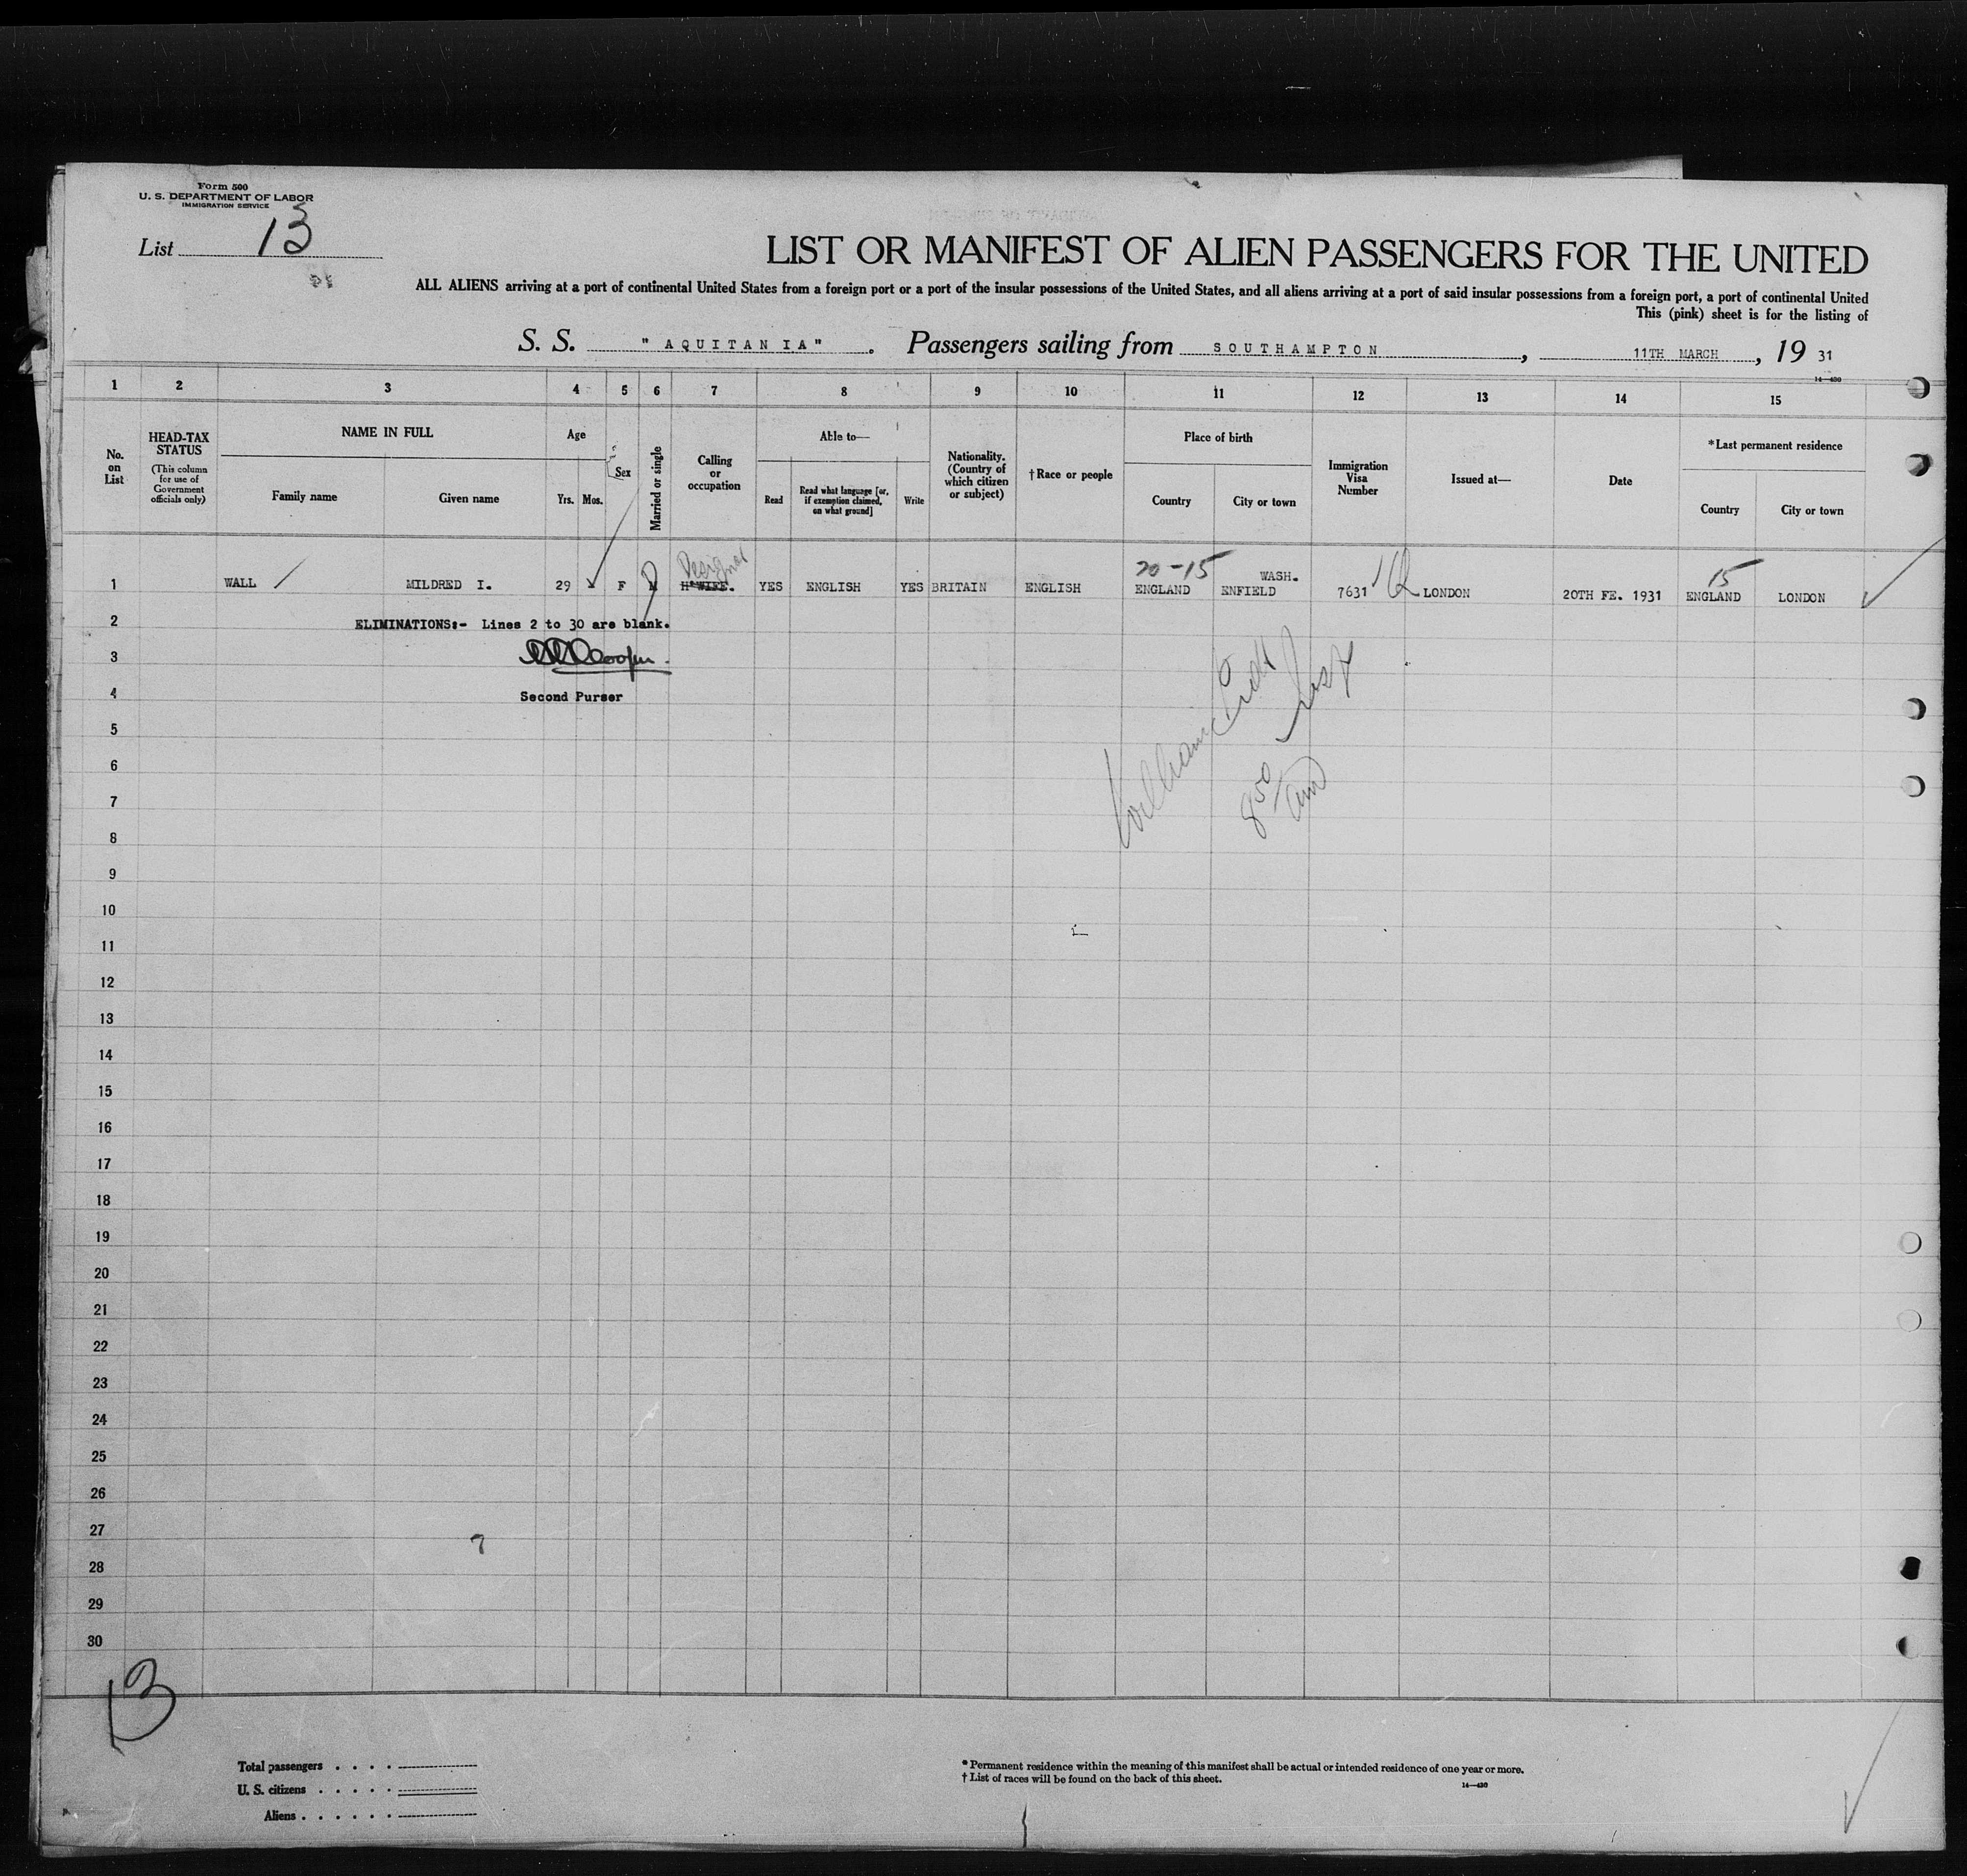 Form 500
U. S. DEPARTMENT OF LABOR
IMMIGRATION SERVICE
List 13
LIST OR MANIFEST OF ALIEN PASSENGERS FOR THE UNITED
ALL ALIENS arriving at a port of continental United States from a foreign port or a port of the insular possessions of the United States, and all aliens arriving at a port of said insular possessions from a foreign port, a port of continental United
This (pink) sheet is for the listing of
S. S. "AQUITANIA". Passengers sailing from SOUTHAMPTON, 11TH MARCH, 19 31
14—430
1 2 3 4 5 6 7 8 9 10 11 12 13 14 15
No. on List
HEAD-TAX STATUS
(This column for use of Government officials only)
NAME IN FULL
Family name
Given name
Age
Yrs. Mos.
Sex
Married or single
Calling or occupation
Able to—
Read
Read what language [or, if exemption claimed, on what ground]
Write
Nationality. (Country of which citizen or subject)
†Race or people
Place of birth
Country
City or town
Immigration Visa Number
Issued at—
Date
*Last permanent residence
Country
City or town
Designer
20-15
WASH.
15
1 WALL MILDRED I. 29 F M H'WIFE. YES ENGLISH YES BRITAIN ENGLISH ENGLAND ENFIELD 7631 LONDON 20TH FE. 1931 ENGLAND LONDON
2 ELIMINATIONS:- Lines 2 to 30 are blank.
3
4 Second Purser
William
5
6
7
8
9
10
11
12
13
14
15
16
17
18
19
20
21
22
23
24
25
26
27
7
28
29
30
13
Total passengers . . . .
U. S. citizens . . . . .
Aliens . . . . . .
*Permanent residence within the meaning of this manifest shall be actual or intended residence of one year or more.
†List of races will be found on the back of this sheet.
14—430